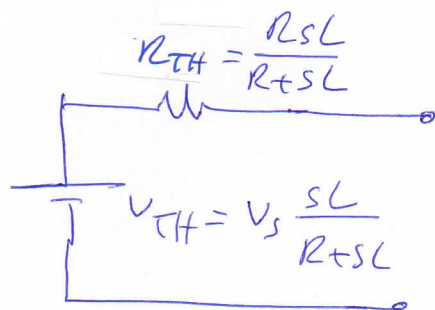 R_TH = RSL / R+SL
V_TH = V_S SL / R+SL